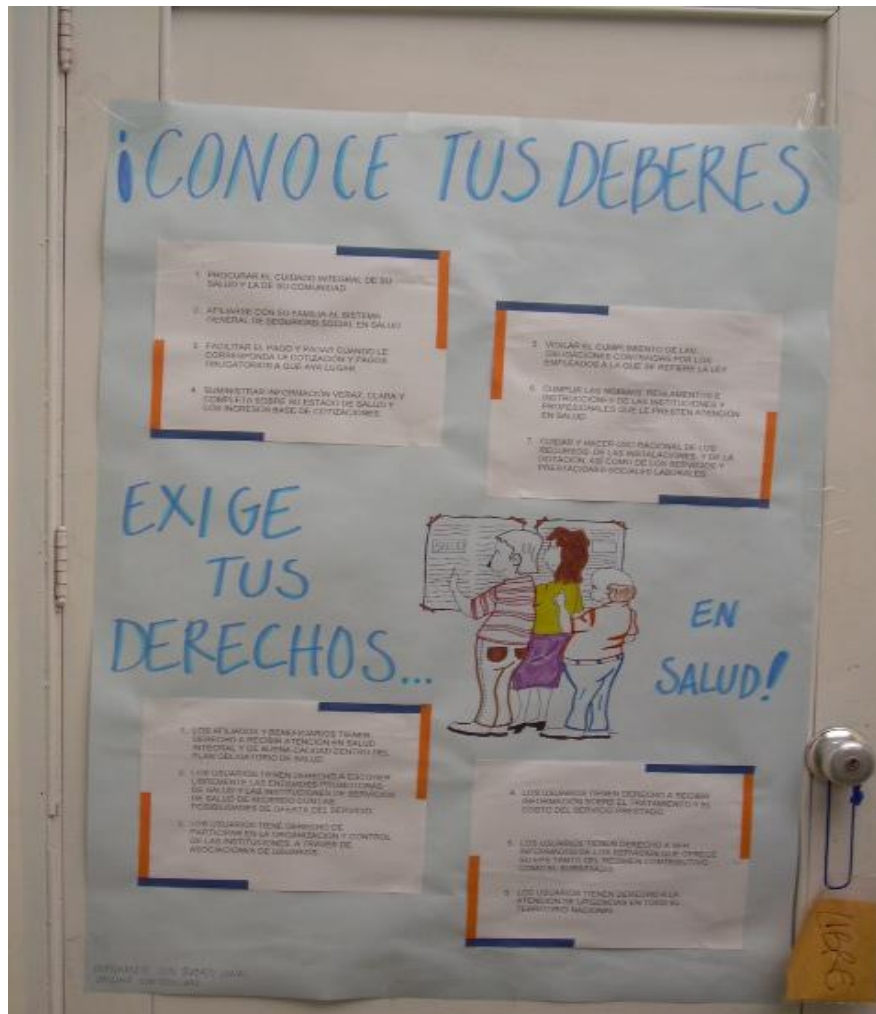 ¡CONOCE TUS DEBERES
1. PROCURAR EL CUIDADO INTEGRAL DE SU
SALUD Y LA DE SU COMUNIDAD
2. AFILIARSE CON SU FAMILIA AL SISTEMA
GENERAL DE SEGURIDAD SOCIAL EN SALUD
3. FACILITAR EL PAGO Y PAGAR CUANDO LE
CORRESPONDA LA COTIZACIÓN Y PAGOS
OBLIGATORIOS A QUE AYA LUGAR
4. SUMINISTRAR INFORMACIÓN VERAZ, CLARA Y
COMPLETA SOBRE SU ESTADO DE SALUD Y
LOS INGRESOS BASE DE COTIZACIONES
5. VIGILAR EL CUMPLIMIENTO DE LAS
OBLIGACIONES CONTRAIDAS POR LOS
EMPLEADOS A LA QUE SE REFIERE LA LEY
6. CUMPLIR LAS NORMAS, REGLAMENTOS E
INSTRUCCIONES DE LAS INSTITUCIONES Y
PROFESIONALES QUE LE PRESTEN ATENCIÓN
EN SALUD
7. CUIDAR Y HACER USO RACIONAL DE LOS
RECURSOS, DE LAS INSTALACIONES, Y DE LA
DOTACIÓN, ASÍ COMO DE LOS SERVICIOS Y
PRESTACIONES SOCIALES LABORALES.
EXIGE
TUS
DERECHOS...
EN
SALUD!
1. LOS AFILIADOS Y BENEFICIARIOS TIENEN
DERECHO A RECIBIR ATENCION EN SALUD
INTEGRAL Y DE BUENA CALIDAD DENTRO DEL
PLAN OBLIGATORIO DE SALUD
2. LOS USUARIOS TIENEN DERECHO A ESCOGER
LIBREMENTE LAS ENTIDADES PROMOTORAS
DE SALUD Y LAS INSTITUCIONES DE SERVICIOS
DE SALUD DE ACUERDO CON LAS
POSIBILIDADES DE OFERTA DEL SERVICIO.
3. LOS USUARIOS TIENE DERECHO DE
PARTICIPAR EN LA ORGANIZACIÓN Y CONTROL
DE LAS INSTITUCIONES, A TRAVES DE
ASOCIACIONES DE USUARIOS.
4. LOS USUARIOS TIENEN DERECHO A RECIBIR
INFORMACIÓN SOBRE EL TRATAMIENTO Y EL
COSTO DEL SERVICIO PRESTADO.
5. LOS USUARIOS TIENEN DERECHO A SER
INFORMADOS DE LOS SERVICIOS QUE OFRECE
SU EPS TANTO DEL REGIMEN CONTRIBUTIVO
COMO EL SUBSIDIADO
6. LOS USUARIOS TIENEN DERECHO A LA
ATENCIÓN DE URGENCIAS EN TODO EL
TERRITORIO NACIONAL
LIBRE